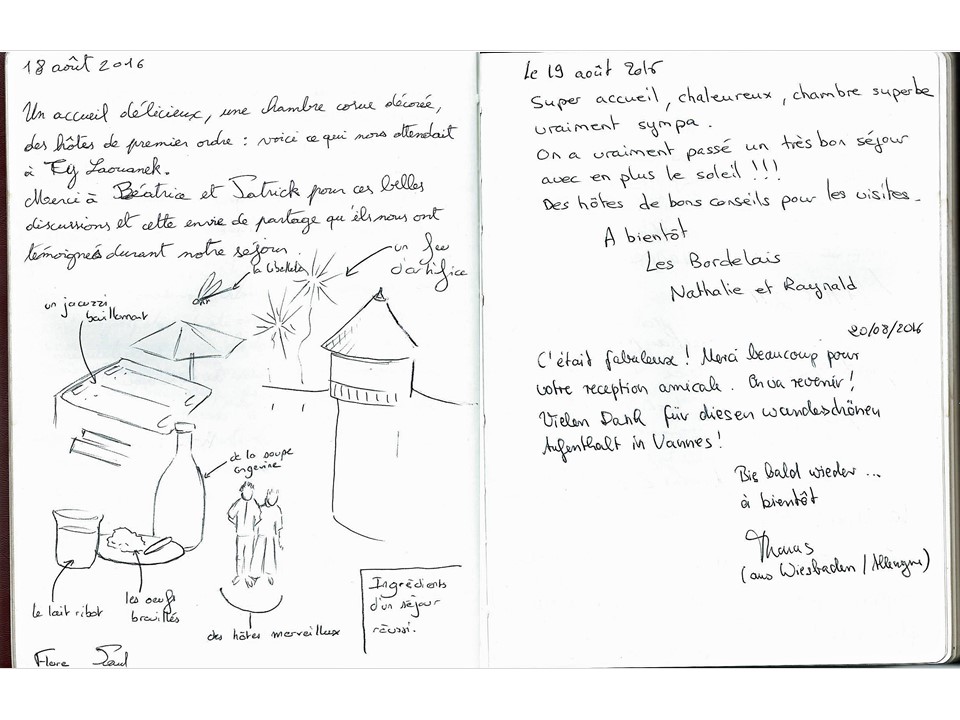 18 août 2016
Un accueil délicieux, une chambre cosue décorée,
des hôtes de premier ordre : voici ce qui nous attendait
à Ty Laouanek.
Merci à Béatrice et Patrick pour ces belles
discussions et cette envie de partage qu'ils nous ont
témoignés durant notre séjour.
la libellule
un feu
d'artifice
un jacuzzi
baillemant
de la soupe
angevine
le lait ribot
les oeufs
brouillés
des hôtes merveilleux
Ingrédients
d'un séjour
réussi.
Flore
Le 19 août 2016
Super accueil, chaleureux, chambre superbe
vraiment sympa.
On a vraiment passé un très bon séjour
avec en plus le soleil !!!
Des hôtes de bons conseils pour les visites.
A bientôt
Les Bordelais
Nathalie et Raynald
20/08/2016
C'était fabuleux ! Merci beaucoup pour
votre reception amicale. On va revenir !
Vielen Dank für diesen wundeschönen
Aufenthalt in Vannes !
Bis bald wieder ...
à bientôt
Thomas
(aus Wiesbaden / Allemagne)